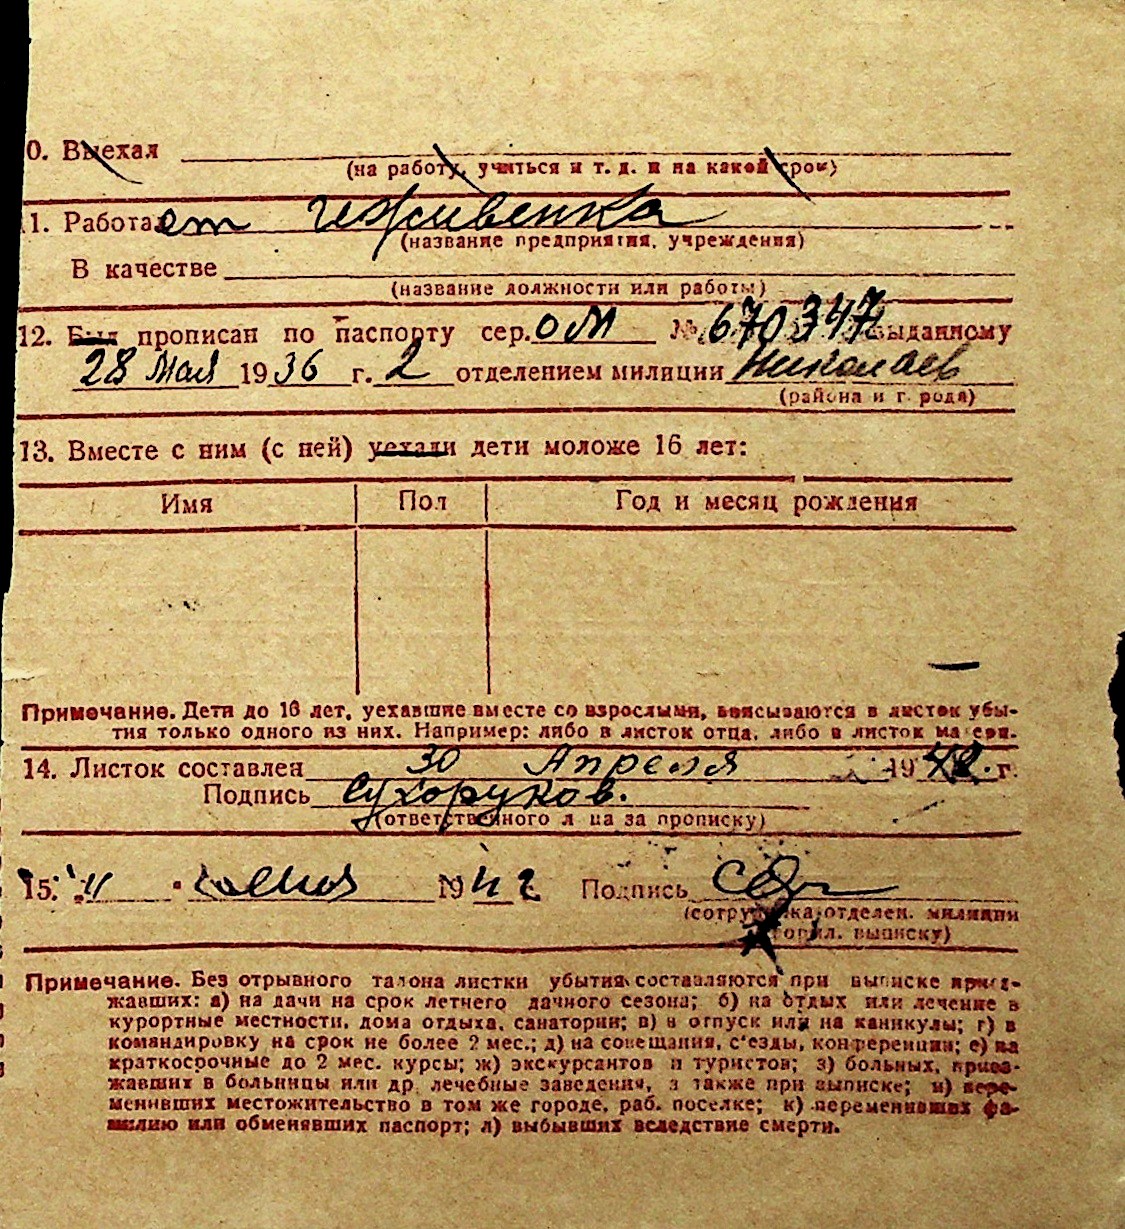 0. Выехал
(на работу, учиться и т. д. и на какой срок)
1. Работает иждивенка
(название предприятия, учреждения)
В качестве
(название должности или работы)
12. Был прописан по паспорту сер. ОМ № 670347 выданному
28 Мая 1936 г. 2 отделением милиции Николаев
(района и города)
13. Вместе с ним (с ней) уехали дети моложе 16 лет:
Имя Пол Год и месяц рождения
Примечание. Дети до 16 лет, уехавшие вместе со взрослыми, вписываются в листок убы-
тия только одного из них. Например: либо в листок отца, либо в листок матери.
14. Листок составлен 30 Апреля 1942 г.
Подпись Сухоруков.
(ответственного лица за прописку)
15. 11 1942 Подпись
(сотрудника отделен. милиции
выписку)
Примечание. Без отрывного талона листки убытия составляются при выписке приез-
жавших: а) на дачи на срок летнего дачного сезона; б) на отдых или лечение в
курортные местности, дома отдыха, санатории; в) в отпуск или на каникулы; г) в
командировку на срок не более 2 мес.; д) на совещания, с'езды, конференции; е) на
краткосрочные до 2 мес. курсы; ж) экскурсантов и туристов; з) больных, приез-
жавших в больницы или др. лечебные заведения, а также при выписке; и) пере-
менивших местожительство в том же городе, раб. поселке; к) переменивших фа-
милию или обменявших паспорт; л) выбывших вследствие смерти.